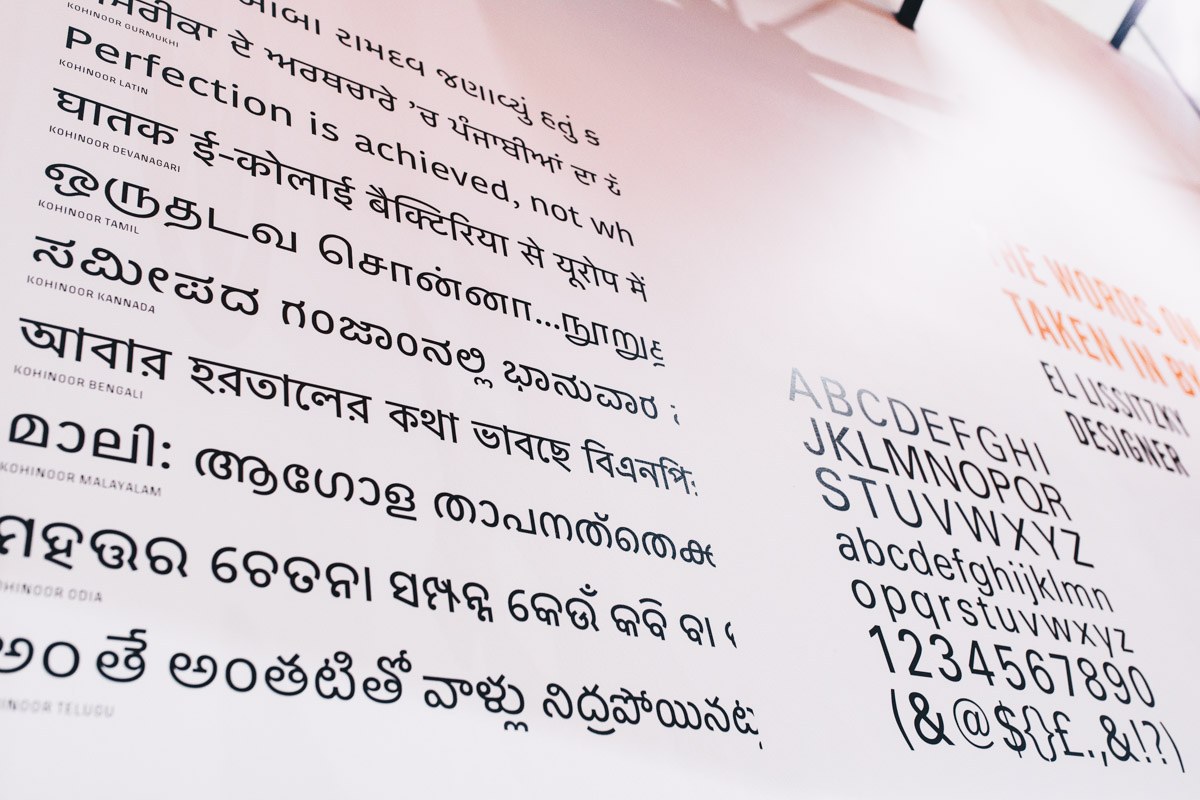 રામદેવ જણાવ્યું હતું ક
ਦੇ ਅਰਥਚਾਰੇ ’ਚ ਪੰਜਾਬੀਆਂ ਦਾ
KOHINOOR GURMUKHI
Perfection is achieved, not wh
KOHINOOR LATIN
घातक ई-कोलाई बैक्टिरिया से यूरोप में
KOHINOOR DEVANAGARI
ஒருதடவ சொன்னா...நூறு
KOHINOOR TAMIL
ಸಮೀಪದ ಗಂಜಾಂನಲ್ಲಿ ಭಾನುವಾರ
KOHINOOR KANNADA
আবার হরতালের কথা ভাবছে বিএনপি:
KOHINOOR BENGALI
മാലി: ആഗോള താപനത്തെക്
KOHINOOR MALAYALAM
ମହତ୍ତର ଚେତନା ସମ୍ପନ୍ନ କେଉଁ କବି ବା
KOHINOOR ODIA
అంతే అంతటితో వాళ్లు నిద్రపోయినట
KOHINOOR TELUGU
THE WORDS ON
TAKEN IN BY
EL LISSITZKY
DESIGNER
ABCDEFGHI
JKLMNOPQR
STUVWXYZ
abcdefghijklmn
opqrstuvwxyz
1234567890
(&@$£.,&!?)